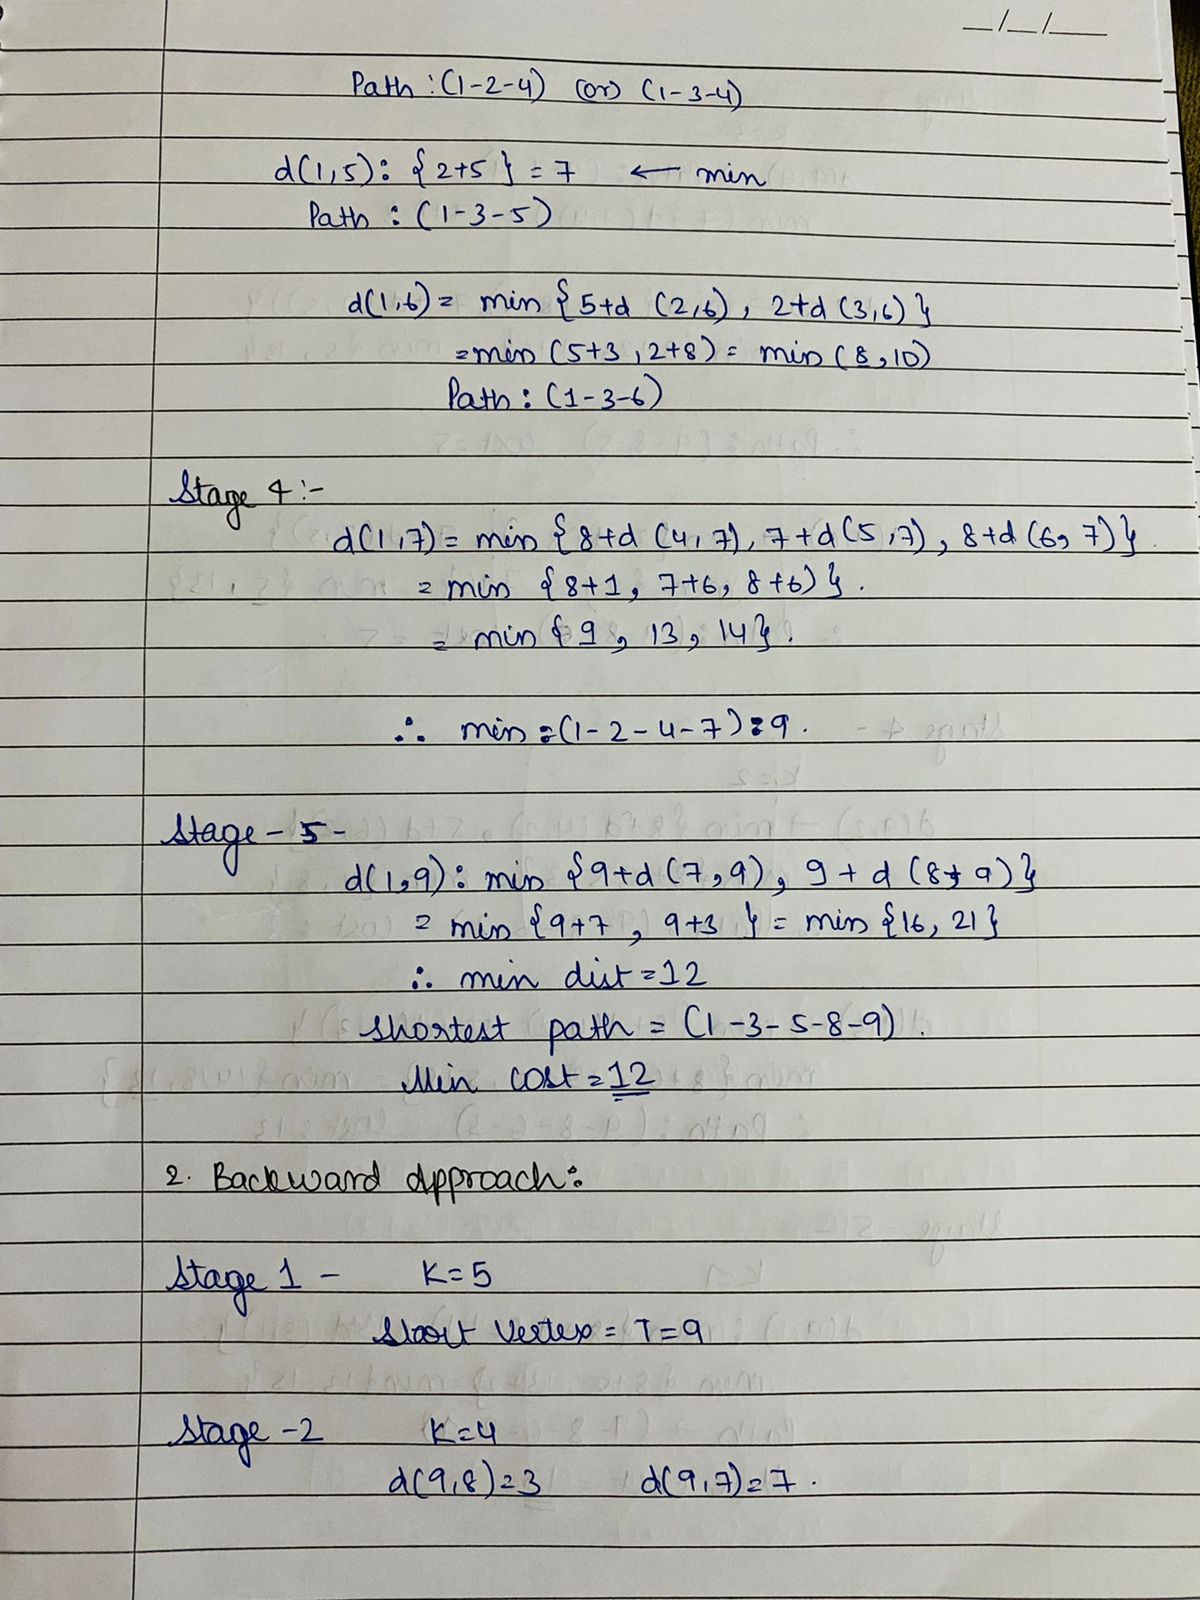 __/__/____
Path : (1-2-4) (or) (1-3-4)
d(1,5): {2+5} = 7 ← min
Path : (1-3-5)
d(1,6) = min {5+d (2,6), 2+d (3,6)}
= min (5+3, 2+8) = min (8,10)
Path : (1-3-6)
Stage 4 :-
d(1,7) = min {8+d (4,7), 7+d(5,7), 8+d(6,7)}.
= min {8+1, 7+6, 8+6)}.
= min {9, 13, 14}.
∴ min = (1-2-4-7) = 9.
Stage - 5 -
d(1,9): min {9+d(7,9), 9+d (8,9)}
= min {9+7, 9+3 } = min {16, 21}
∴ min dist = 12
Shortest path = (1-3-5-8-9).
Min cost = 12
2. Backward Approach:
Stage 1 - K=5
Start Vertex = T=9
Stage -2 K=4
d(9,8)=3 d(9,7)=7.